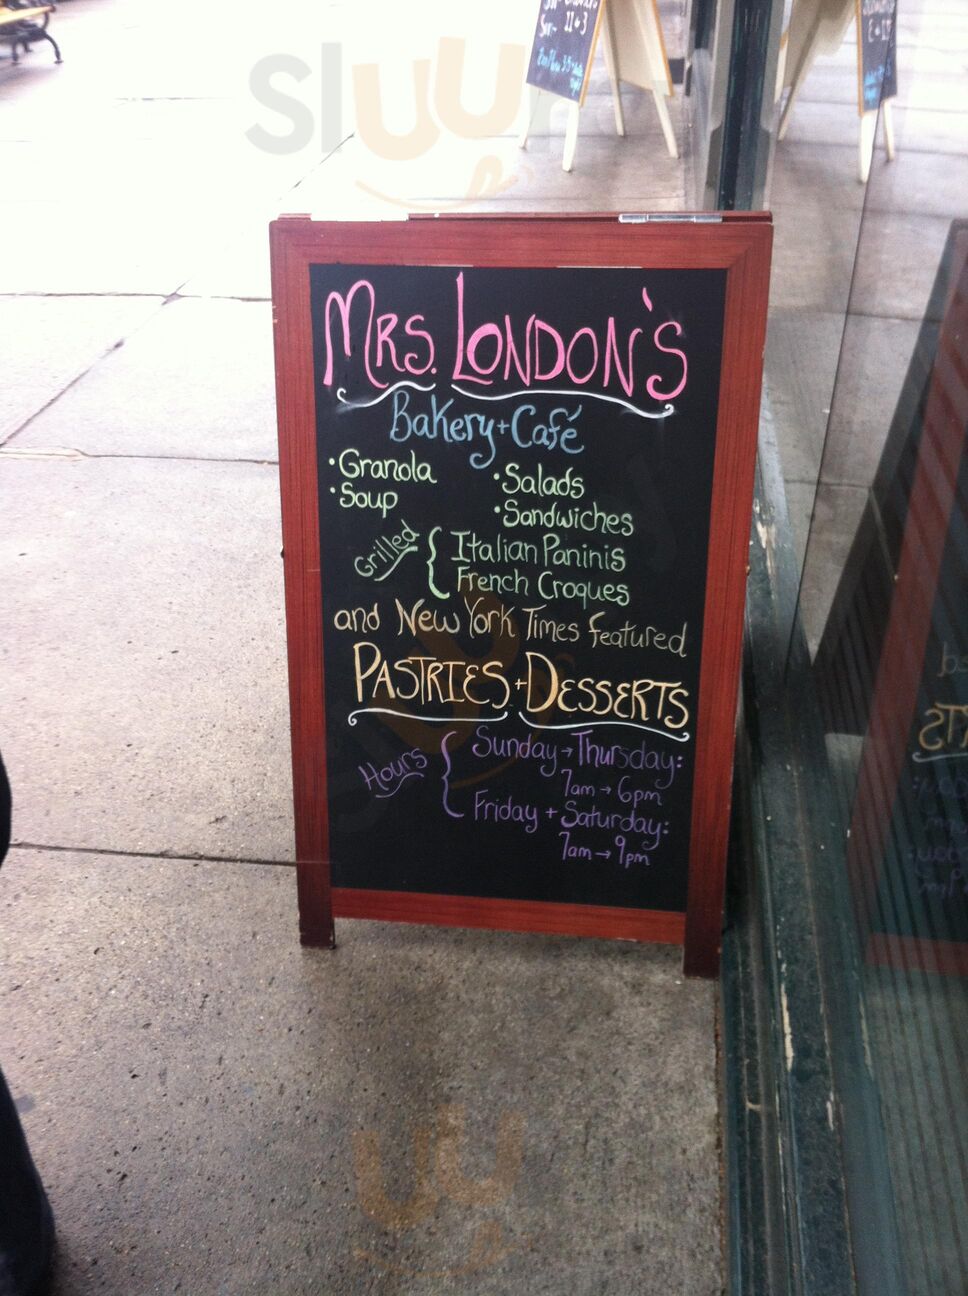 Mrs. London's
Bakery + Café
• Granola
• Soup
• Salads
• Sandwiches
Grilled { Italian Paninis
French Croques
and New York Times featured
Pastries + Desserts
Hours { Sunday → Thursday:
7am → 6pm
Friday + Saturday:
7am → 9pm